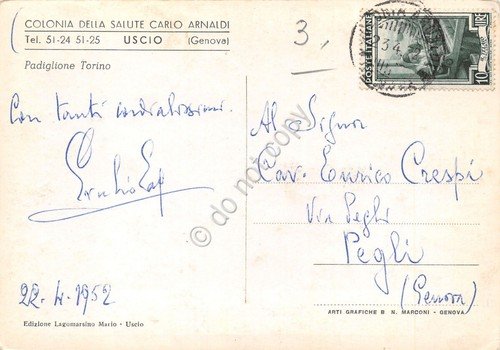 COLONIA DELLA SALUTE CARLO ARNALDI
Tel. 51-24 51-25 USCIO (Genova)
Padiglione Torino
3,
POSTE ITALIANE
LIRE 10
Con tanti cordialissimi
22-4-1952
Edizione Lagomarsino Mario - Uscio
Al Signor
Cav. Enrico Crespi
Via Peghi
Pegli
(Genova)
ARTI GRAFICHE B. N. MARCONI - GENOVA
© do not copy